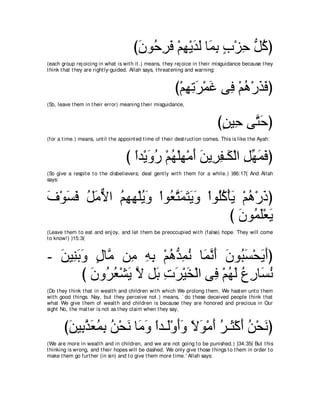 (كُلُّ حِزْبٍ بِمَا لَدَيْهِمْ فَرِحُونَ)
(each group rejoicing in what is with it.) means, they rejoice in their misguidance because they
think that they are rightly-guided. Allah says, threatening and warning:
(فَذَرْهُمْ فِى غَمْرَتِهِمْ)
(So, leave them in their error) meaning their misguidance,
(حَتَّى حِينٍ)
(for a time.) means, until the appointed time of their destruction comes. This is like the Ayah:
(فَمَهِّلِ الْكَـفِرِينَ أَمْهِلْهُمْ رُوَيْداً )
(So give a respite to the disbelievers; deal gently with them for a while.) )86:17( And Allah
says:
(ذَرْهُمْ يَأْكُلُواْ وَيَتَمَتَّعُواْ وَيُلْهِهِمُ الاٌّمَلُ فَسَوْفَ
يَعْلَمُونَ )
(Leave them to eat and enjoy, and let them be preoccupied with (false) hope. They will come
to know!) )15:3(
(أَيَحْسَبُونَ أَنَّمَا نُمِدُّهُمْ بِهِ مِن مَّالٍ وَبَنِينَ -
نُسَارِعُ لَهُمْ فِى الْخَيْرَتِ بَل لاَّ يَشْعُرُونَ )
(Do they think that in wealth and children with which We prolong them, We hasten unto them
with good things. Nay, but they perceive not.) means, `do those deceived people think that
what We give them of wealth and children is because they are honored and precious in Our
sight No, the matter is not as they claim when they say,
(نَحْنُ أَكْثَـرُ أَمْوَلاً وَأَوْلَـداً وَمَا نَحْنُ بِمُعَذَّبِينَ)
(We are more in wealth and in children, and we are not going to be punished.) [34:35] But this
thinking is wrong, and their hopes will be dashed. We only give those things to them in order to
make them go further (in sin) and to give them more time.' Allah says: